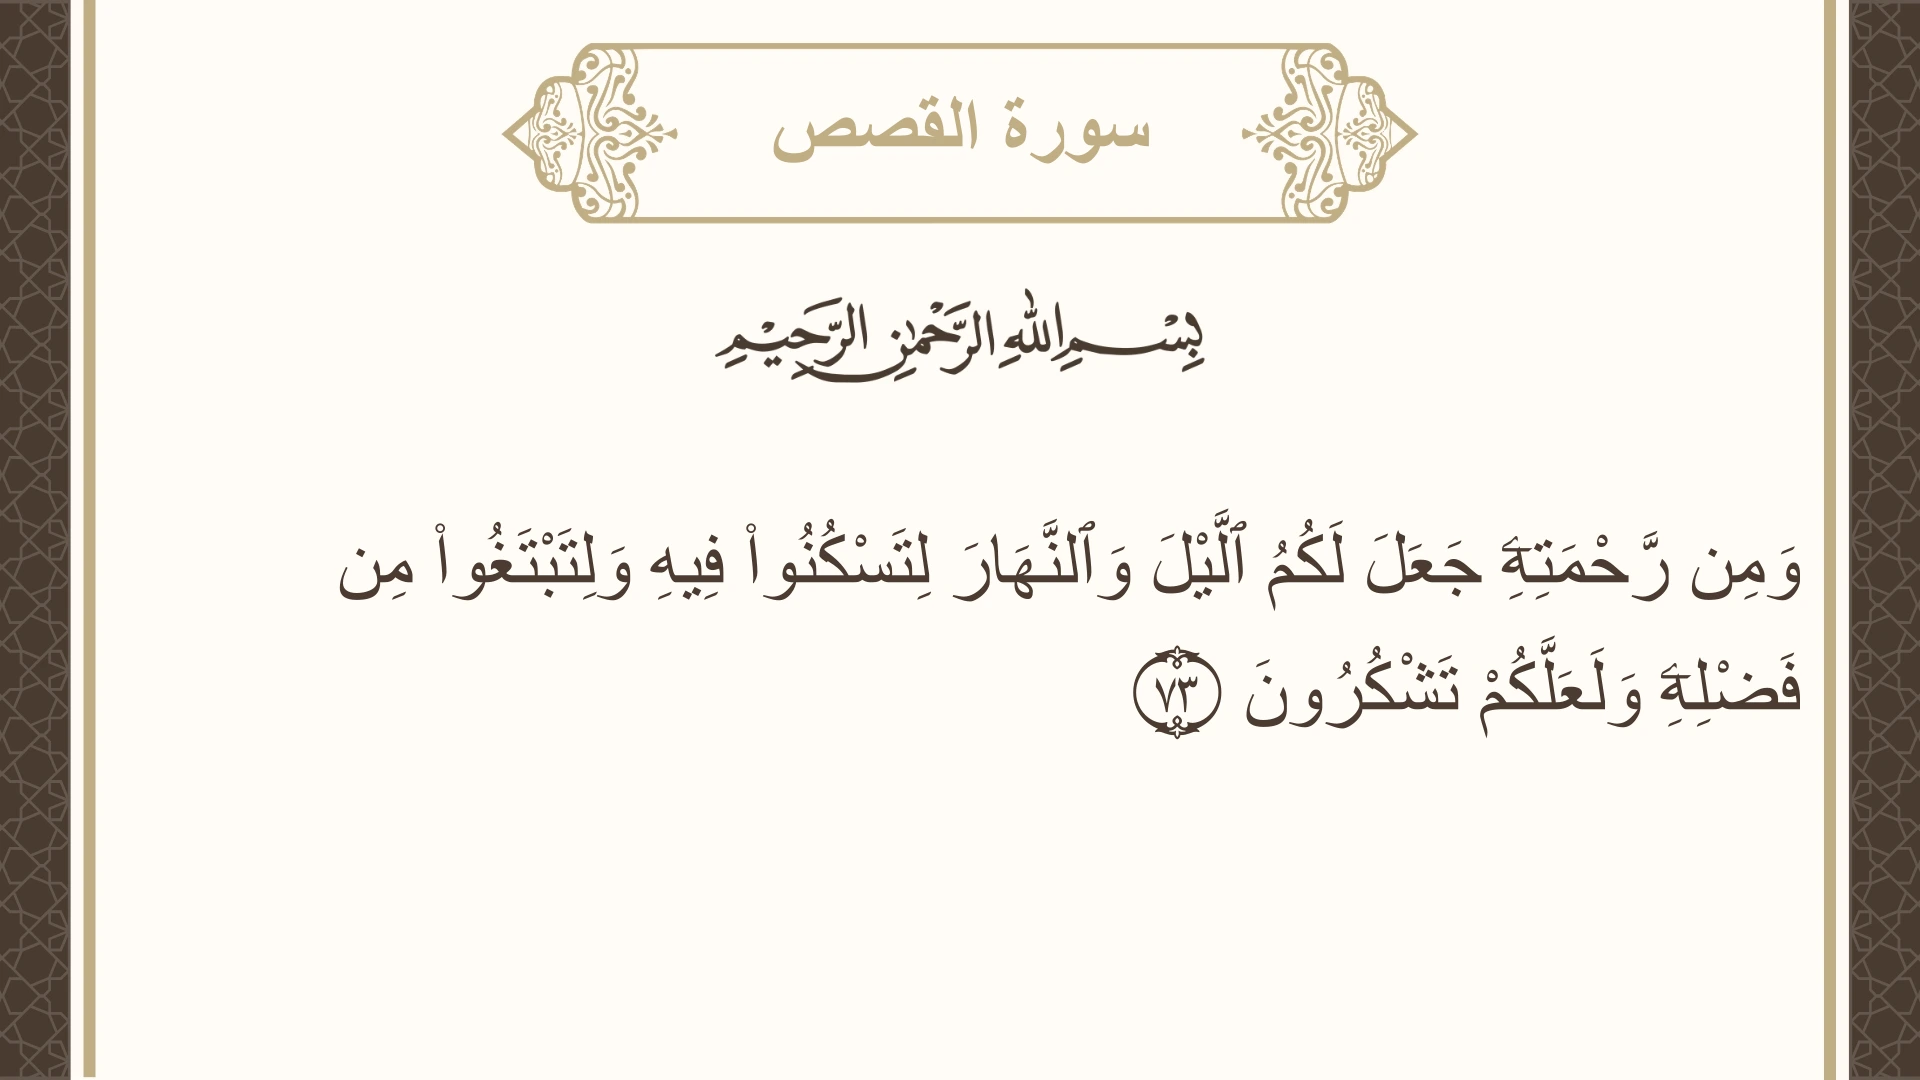 سورة القصص
بِسْمِ اللهِ الرَّحْمٰنِ الرَّحِيْمِ
وَمِن رَّحْمَتِهِۦ جَعَلَ لَكُمُ ٱلَّيْلَ وَٱلنَّهَارَ لِتَسْكُنُوا۟ فِيهِ وَلِتَبْتَغُوا۟ مِن
فَضْلِهِۦ وَلَعَلَّكُمْ تَشْكُرُونَ ٧٣